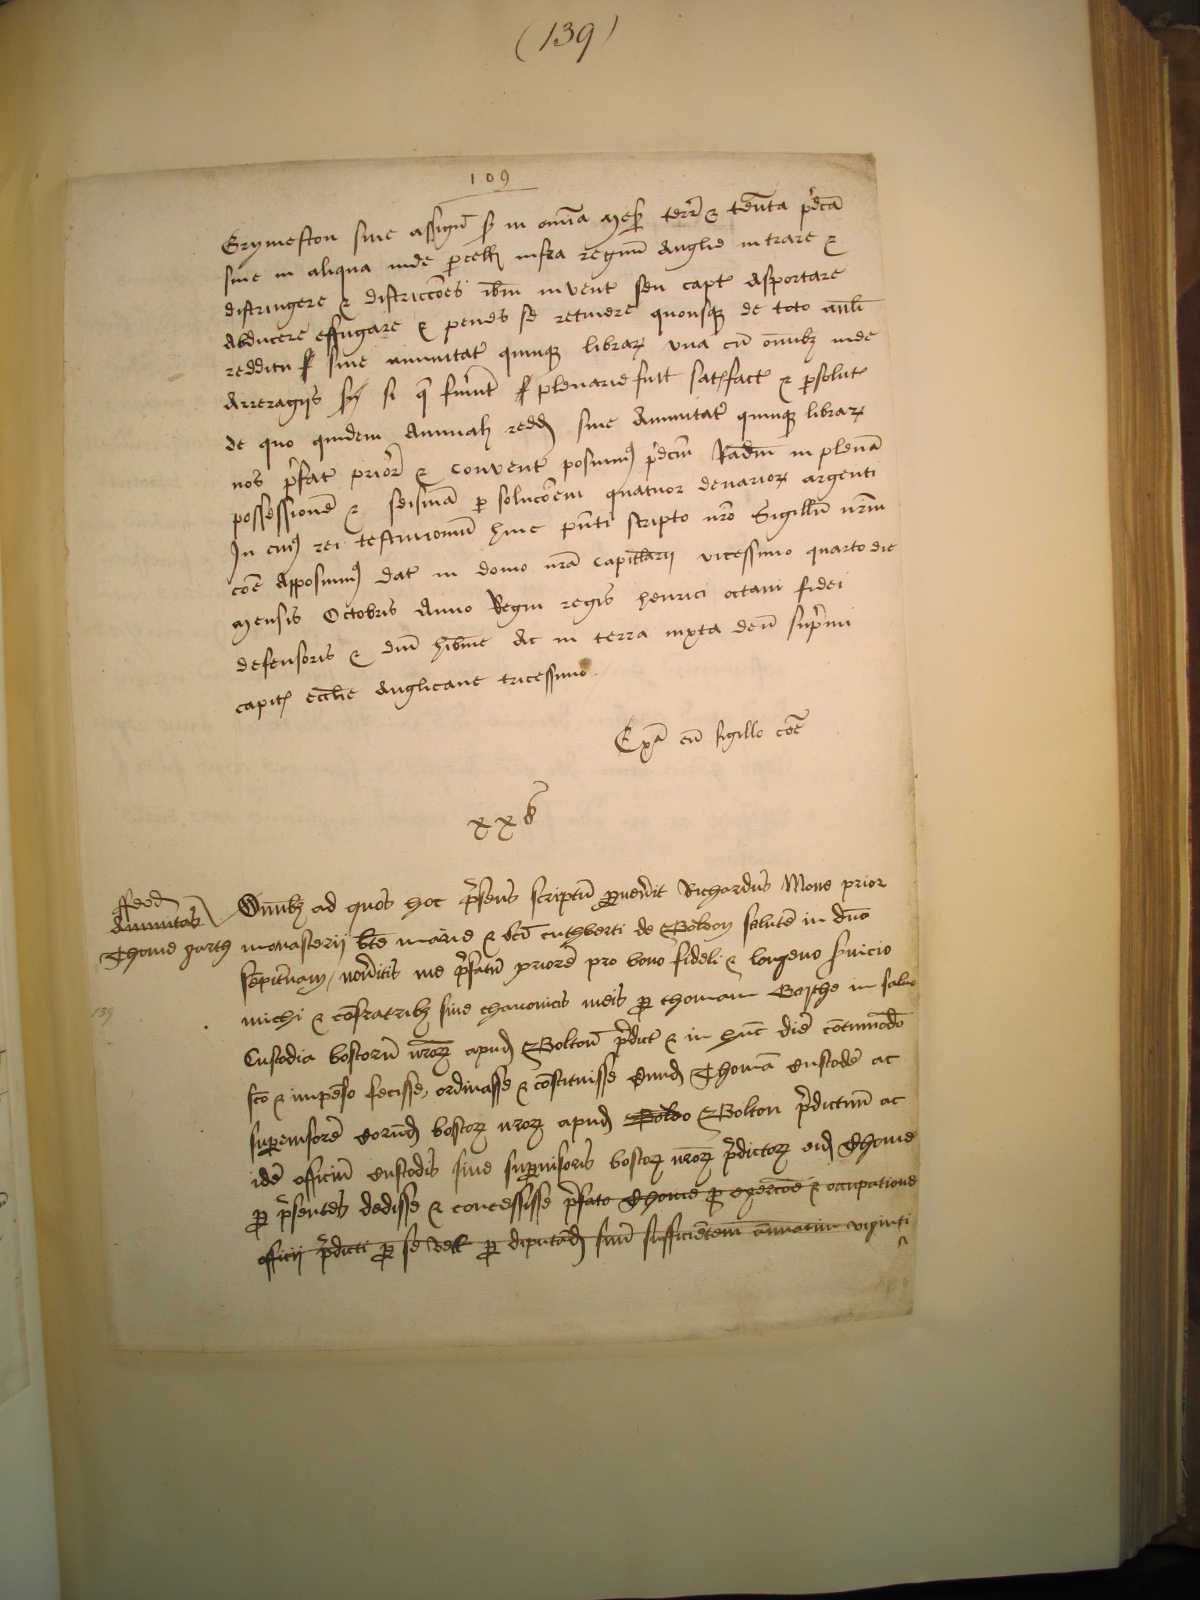 (139)
109
Grymeston sine assignt sui in om̄ia mess terr & teñta p̄dc̄a
siue in aliqua inde p̱cell infra regnū Anglie intrare &
distringere & districc̄ões ibm̄ invent seu capt Asportare
Abducere effugare & penes se retinere quousq̨ de toto ann̄li
redditu siue annuitat quinq̨ librar vna cū om̄ibȝ inde
Arreragijs si q̄ fuint plenarie fuit satisfact & p̱solut
de quo quidem Annuali redd siue Annuitat quinq̨ librar
nos p̄fat prior & Convent posuim9 p̄dcm̄ Radm̄ in plenā
possessionē & seisinā p̱ soluc̄oem quatuor denarior argenti
In cui9 rei testimoniū huic pn̄ti scripto nr̄o Sigillū nr̄m
cōe Apposuim9 dat in domo nr̄a capitlarij vicessimo quarto die
Mensis Octobris Anno Regni regis henrici octaui fidei
defensoris & dn̄i hib̄nie Ac in terra iuxta deū sup̄mi
capitis eccl̄ie Anglicane tricessimo
Exa cū sigillo cōe
xxv
ffeod
Annuitas
Thome garth
Om̄ibȝ ad quos hoc p̄sens scriptū p̱uen̄it Richardus Mone prior
monasterij bt̄e marie & sc̄i cuthberti de Bolton salutē in dn̄o
sēpit̄nam / noūitis me p̄fatū priorē pro bono fideli & longeuo s̄uicio
michi & cōfratribȝ siue chanonicis meis p̱ thomam Garthe in salua
Custodia boscorū nr̄orȝ apud Boltonū p̄dict & in hūc diē cōtinuādo
fc̄o & impēso fecisse, ordinasse & cōstituisse eund Thomā Custodē ac
sup̱uisorē eorūd boscorȝ nr̄orȝ apud Bolto Bolton p̄dictum ac
idē officiū Custodis siue sup̱uisoris boscorȝ nr̄orȝ p̄dictorȝ eid Thome
p̱ p̄sentes dedisse & concessisse p̄fato Thome p̱ exercōe & occupatione
officij p̄dicti p̱ se vell p̱ diputād suū sufficiētem ānuatim viginti
139